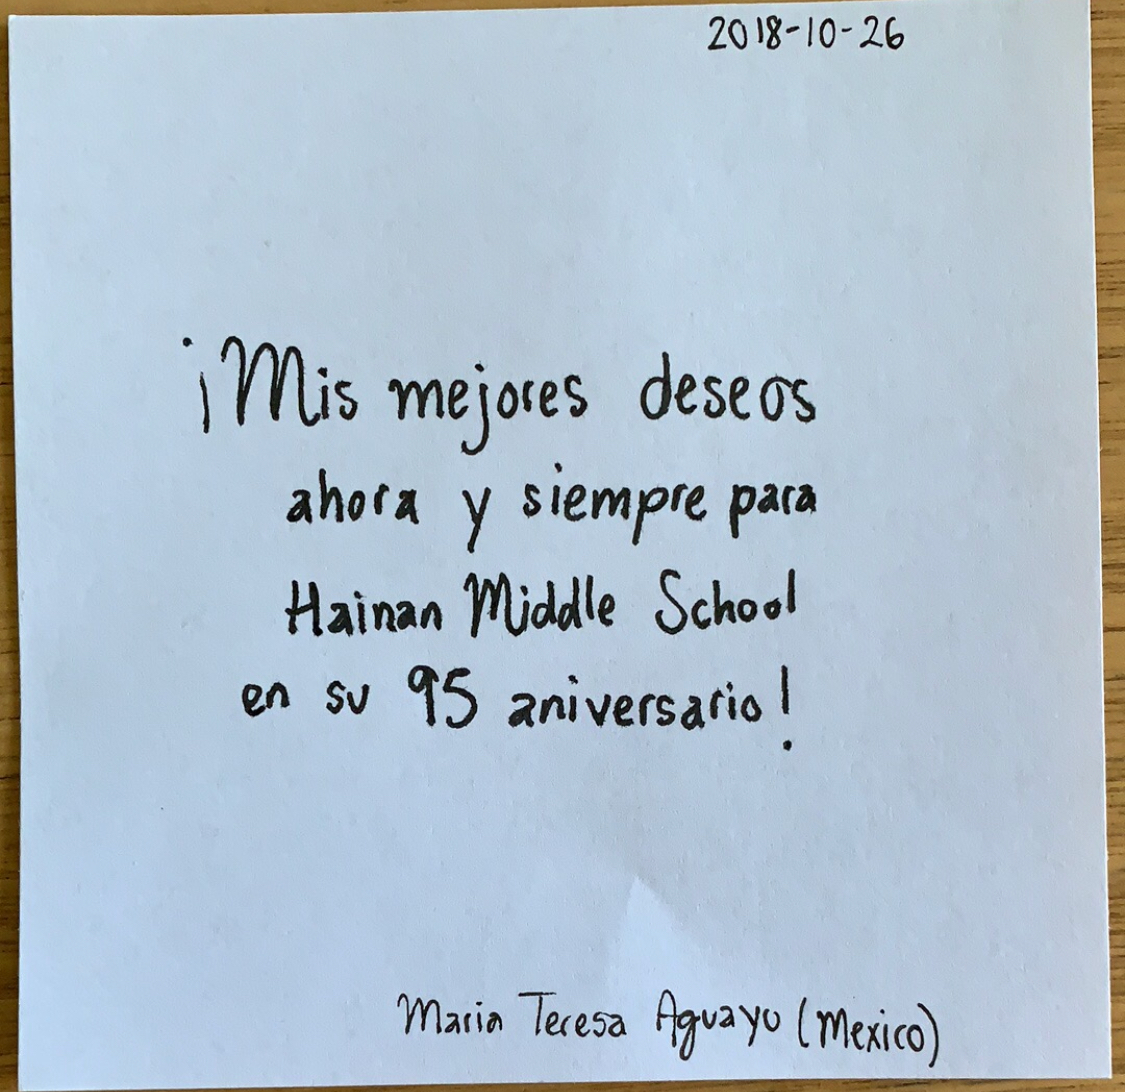 2018-10-26
¡Mis mejores deseos
ahora y siempre para
Hainan Middle School
en su 95 aniversario!
Maria Teresa Aguayo (Mexico)